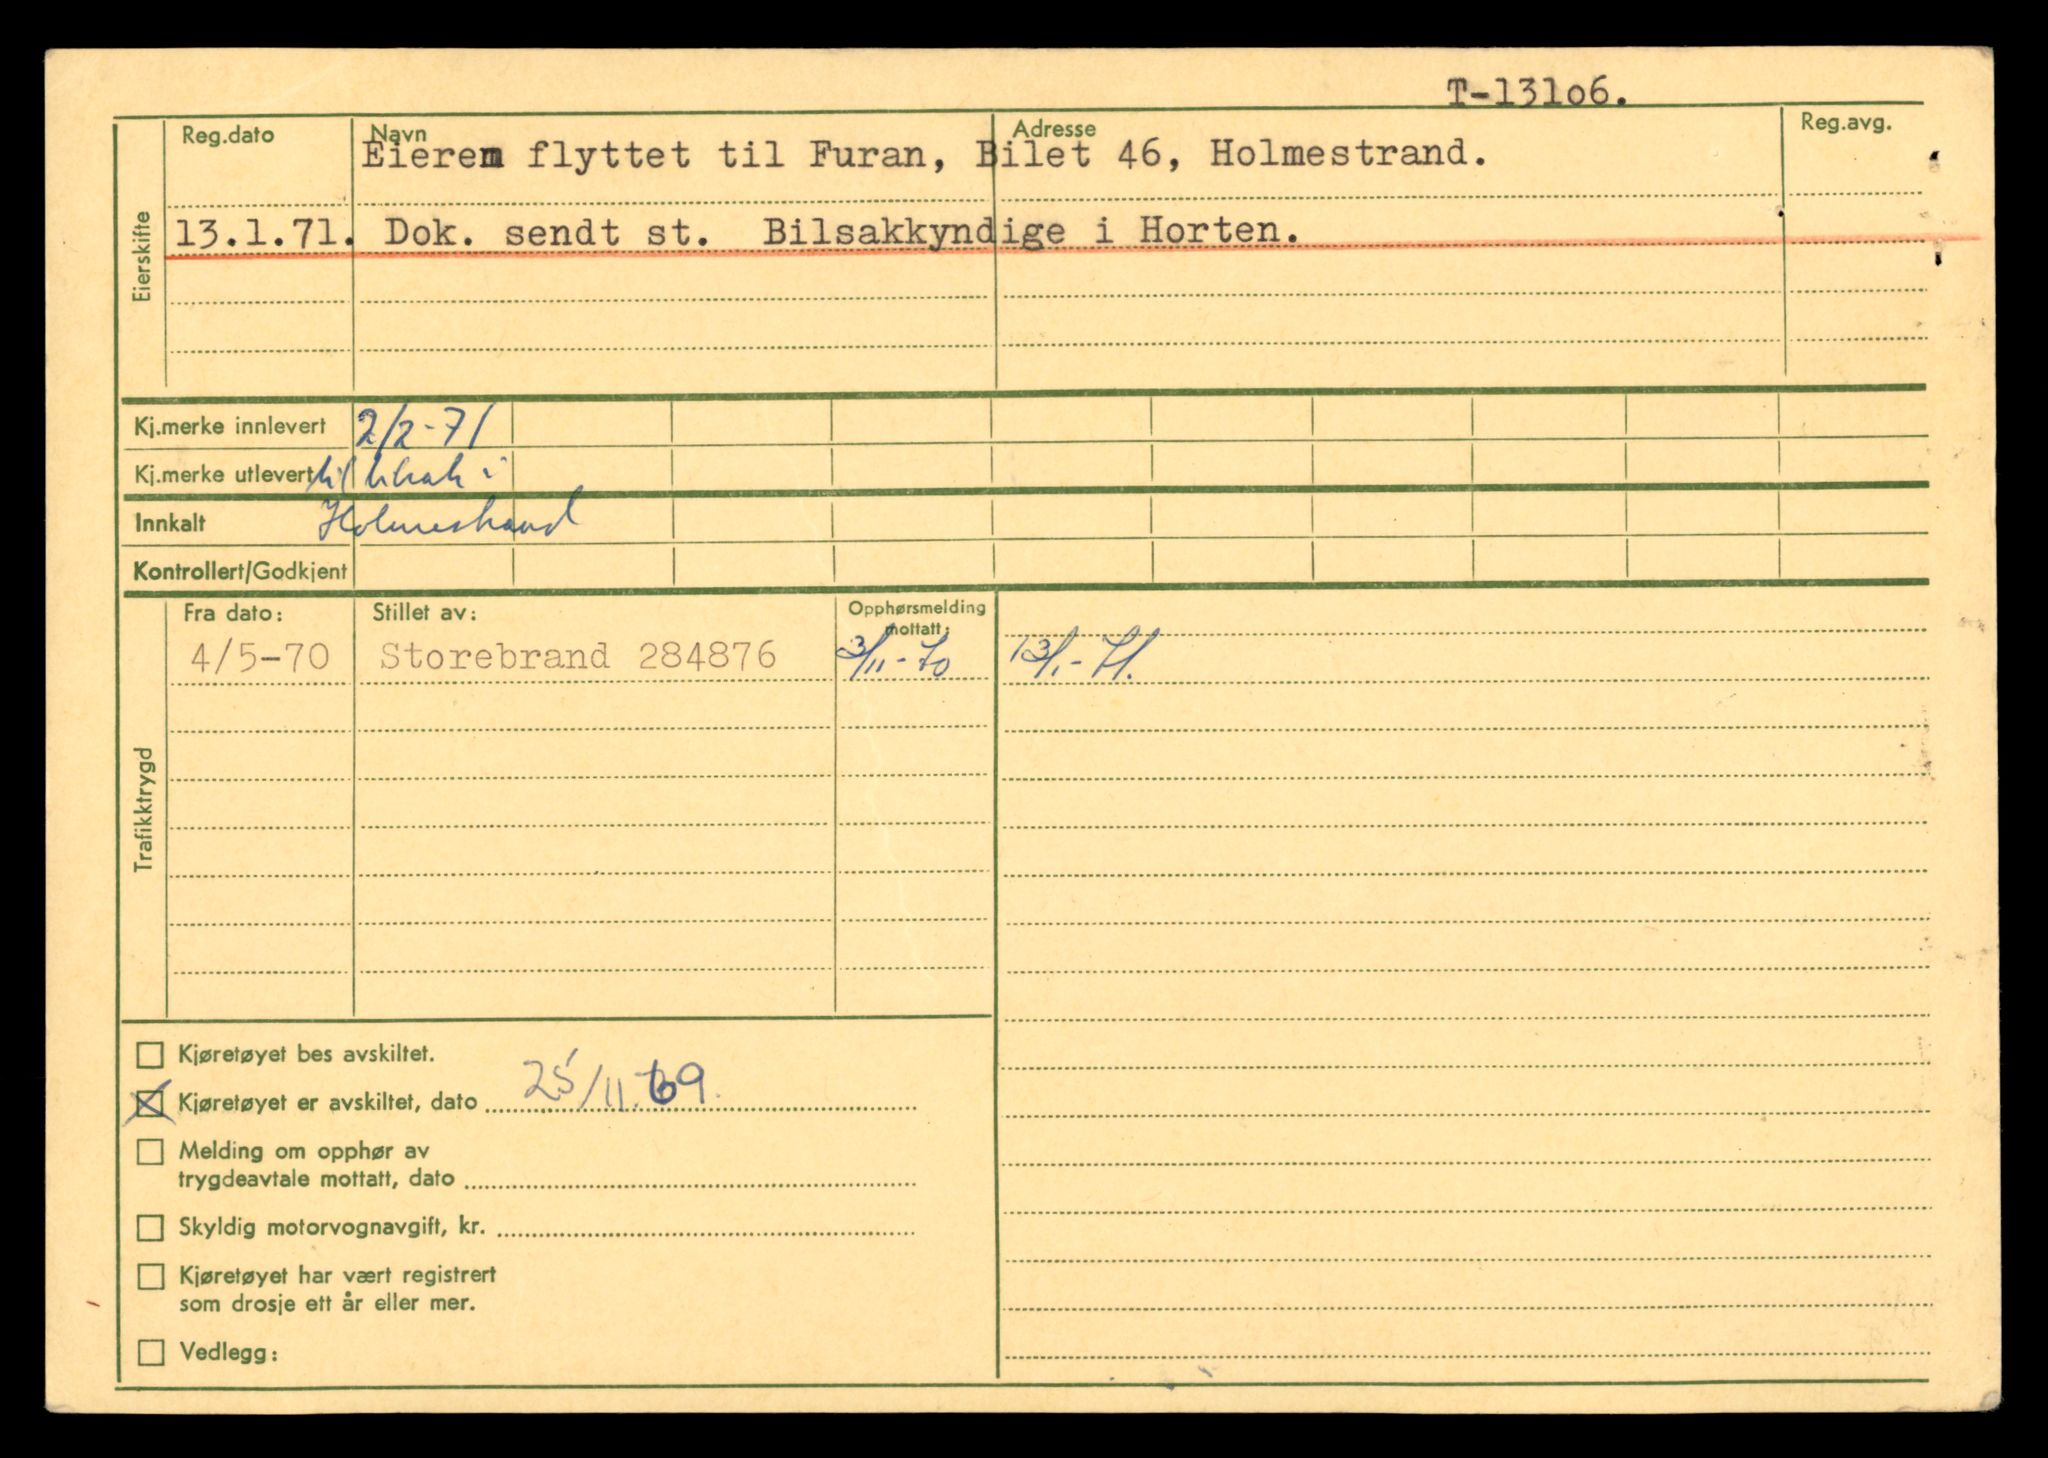 T-13106.
Reg.dato Navn Adresse Reg.avg.
Eieren flyttet til Furan, Bilet 46, Holmestrand.
13.1.71. Dok. sendt st. Bilsakkyndige i Horten.
Eierskifte
Kj.merke innlevert 2/2-71
Kj.merke utlevert til i
Innkalt Holmestrand
Kontrollert/Godkjent
Fra dato: Stillet av: Opphørsmelding
mottatt:
4/5-70 Storebrand 284876 3/11-70 13/1-71.
Trafikktrygd
Kjøretøyet bes avskiltet.
Kjøretøyet er avskiltet, dato 25/11.69.
Melding om opphør av
trygdeavtale mottatt, dato
Skyldig motorvognavgift, kr.
Kjøretøyet har vært registrert
som drosje ett år eller mer.
Vedlegg: